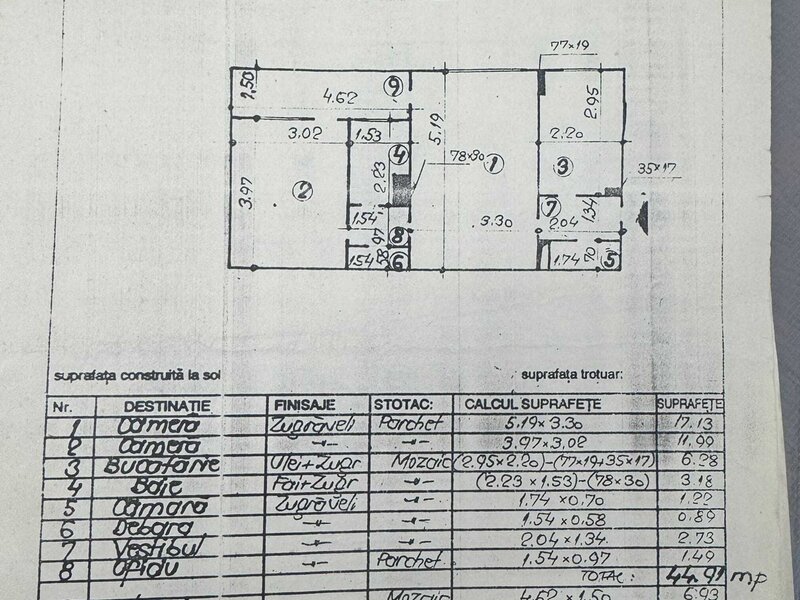 77×19
1,50
9
4.62
2.95
3.02
1.53
5.19
2.20
4
78×30
1
3
35×17
2.23
2
3.97
7
1.34
1.54
3.30
2.04
97
8
1.54
58
6
1.74
70
5
suprafața construită la sol
suprafața trotuar:
Nr. DESTINAȚIE FINISAJE STOTAC: CALCUL SUPRAFEȚE SUPRAFEȚE
1 Cameră Zugrăveli Parchet 5.19×3.30 17.13
2 Cameră -〃- -〃- 3.97×3,02 11.99
3 Bucatarie Ulei+Zugr Mozaic (2.95×2.20)-(77×19+35×17) 6.28
4 Baie Fai+Zugr -〃- (2.23 ×1.53)-(78×30) 3.18
5 Cămară Zugrăveli -〃- 1.74 ×0.70 1.22
6 Debara -〃- -〃- 1.54 ×0.58 0.89
7 Vestibul -〃- -〃- 2.04 ×1.34 2.73
8 Ofidu -〃- Parchet 1.54×0.97 1.49
TOTAL: 44.91 m.p
Mozaic 4.62 ×1.50 6.93